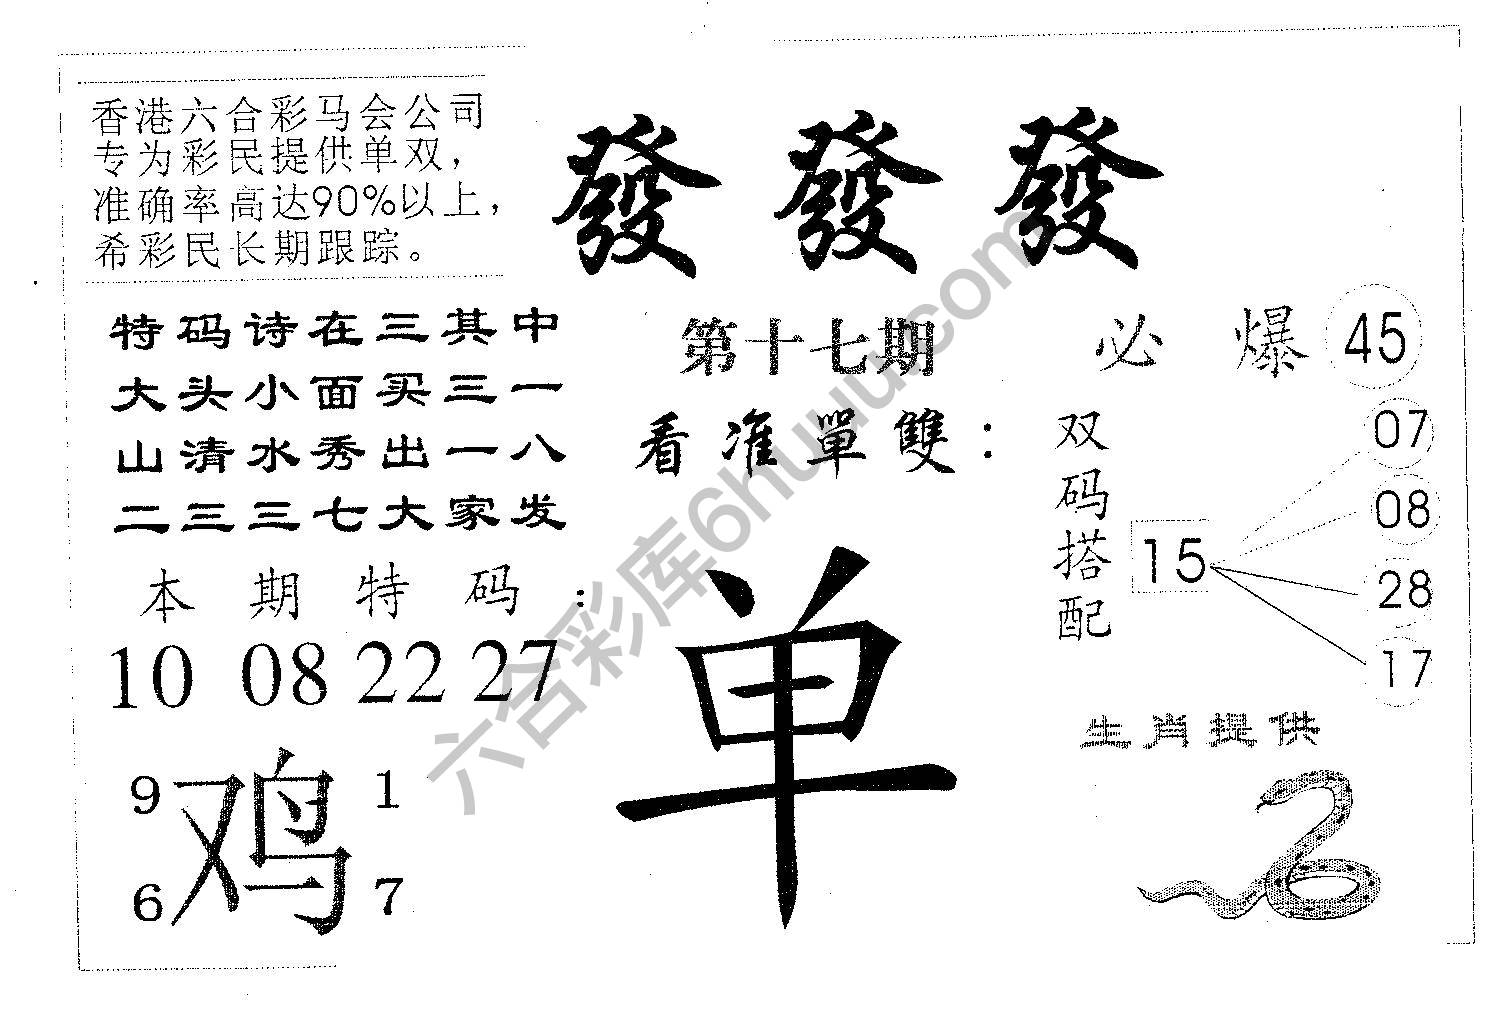 香港六合彩马会公司
专为彩民提供单双，
准确率高达90%以上，
希彩民长期跟踪。
發 發 發
特码诗在三其中
大头小面买三一
山清水秀出一八
二三三七大家发
第十七期
看准單雙：
单
必 爆 45
双码搭配
15
07
08
28
17
本期特码：
10 08 22 27
9 1
鸡
6 7
生肖提供
六合彩库6huuu.com